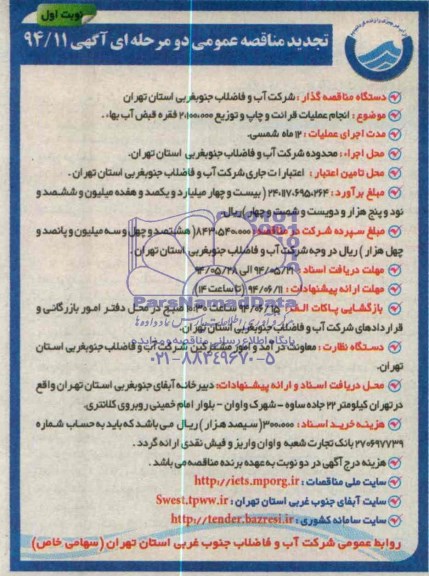 نوبت اول
تجدید مناقصه عمومی دو مرحله ای آگهی ۹۴/۱۱
دستگاه مناقصه گذار : شرکت آب و فاضلاب جنوبغربی استان تهران
موضوع : انجام عملیات قرائت و چاپ و توزیع ۲،۱۰۰،۰۰۰ فقره قبض آب بهاء.
مدت اجرای عملیات : ۱۲ ماه شمسی.
محل اجراء : محدوده شرکت آب و فاضلاب جنوبغربی استان تهران.
محل تامین اعتبار : اعتبارات جاری شرکت آب و فاضلاب جنوبغربی استان تهران.
مبلغ برآورد : ۲۴،۱۱۷،۶۹۵،۲۶۴ ( بیست و چهار میلیارد و یکصد و هفده میلیون و ششصد و
نود و پنج هزار و دویست و شصت و چهار ) ریال
مبلغ سپرده شرکت در مناقصه : ۸۴۳،۵۴۰،۰۰۰ ( هشتصد و چهل و سه میلیون و پانصد و
چهل هزار ) ریال در وجه شرکت آب و فاضلاب جنوبغربی استان تهران.
مهلت دریافت اسناد : ۹۴/۰۵/۲۱ الی ۹۴/۰۵/۲۸
مهلت ارائه پیشنهادات : ۹۴/۰۶/۱۱ ( تا ساعت ۱۴ )
بازگشایی پاکات الف : ۹۴/۰۶/۱۵ ساعت ۱۰:۳۰ صبح در محل دفتر امور بازرگانی و
قراردادهای شرکت آب و فاضلاب جنوبغربی استان تهران.
دستگاه نظارت : معاونت درآمد و امور مشترکین شرکت آب و فاضلاب جنوبغربی استان
تهران.
محل دریافت اسناد و ارائه پیشنهادات: دبیرخانه آبفای جنوبغربی استان تهران واقع
در تهران کیلومتر ۲۲ جاده ساوه - شهرک واوان - بلوار امام خمینی روبروی کلانتری.
هزینه خرید اسناد : ۳۰۰،۰۰۰ ( سیصد هزار ) ریال می باشد که باید به حساب شماره
۲۷۰۶۹۷۷۳۹ بانک تجارت شعبه واوان واریز و فیش نقدی ارائه گردد.
هزینه درج آگهی در دو نوبت به عهده برنده مناقصه می باشد.
سایت ملی مناقصات : http://iets.mporg.ir
سایت آبفای جنوب غربی استان تهران : Swest.tpww.ir
سایت سامانه کشوری : http://tender.bazresi.ir
روابط عمومی شرکت آب و فاضلاب جنوب غربی استان تهران (سهامی خاص)
ParsNamadData
پایگاه اطلاع رسانی مناقصه و مزایده
۰۲۱-۸۸۳۴۹۶۷۰-۵